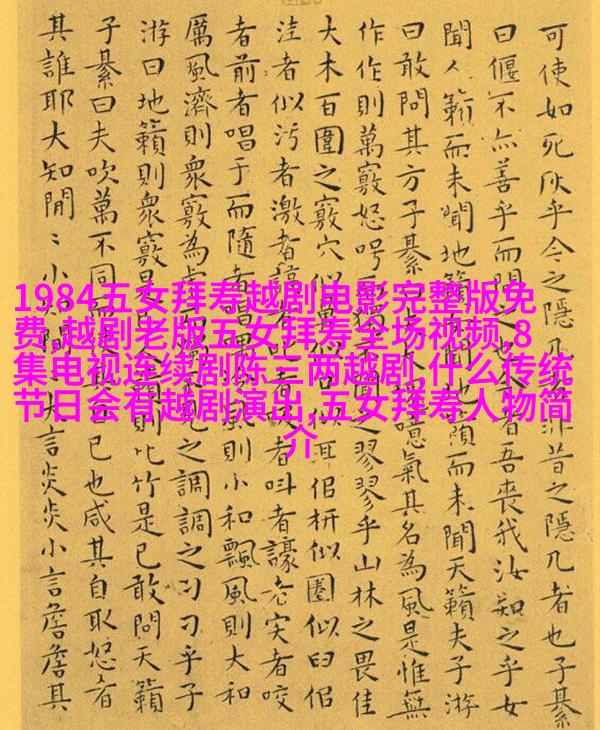 1984五女拜寿越剧电影完整版免
费,越剧老版五女拜寿全场视频,8
集电视连续剧陈三两越剧,什么传统
节日会有越剧演出,五女拜寿人物简
介
可使如死灰乎今之隱几非昔之隱几者也子綦
曰偃不亦善乎而問之今者吾喪我汝知之乎女
聞人籟而未聞地籟女聞地籟而未聞天籟夫子游
曰敢問其方子綦曰夫大噫氣其名為風是惟無
作作則萬竅怒呺而之翏翏乎山林之畏佳
大木百圍之竅穴似鼻似似耳佀枅似圈似臼佀
洼者似污者激者謞者叱者者叫者譹者宎者咬
者前者唱于而隨者唱風則小和飄風則大和
厲風濟則衆竅為虛見之調調之刁刁乎子
游曰地籟則衆竅是已則比竹是已敢問天籟
子綦曰夫吹萬不同而使其自已也咸其自取怒者
其誰耶大知閒〻小知大言炎炎小言詹詹其